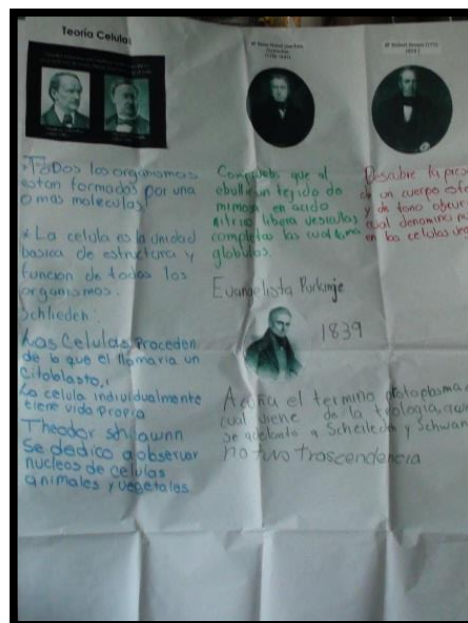 Teoría Celular
*Todos los organismos
estan formados por una
o mas moleculas.
* La celula es la unidad
basica de estructura y
funcion de todos los
organismos.
Schlieden:
Las Celulas proceden
de lo que el llamaria un
citoblasto,
La celula individualmente
tiene vida propia
Theodor
Se dedico a observar
nucleos de celulas
animales y vegetales
Comprueba que al
ebullir un tejido de
mimosa en acido
nitrico libera vesiculas
completas las cual llama
globulos.
Evangelista Purkinje
1839
Acuña el termino protoplasma
cual viene de la
se adelanto a y Schwan
no tuvo trascendencia
Descubre la
de un cuerpo
y de tono
cual denomina
en las celulas